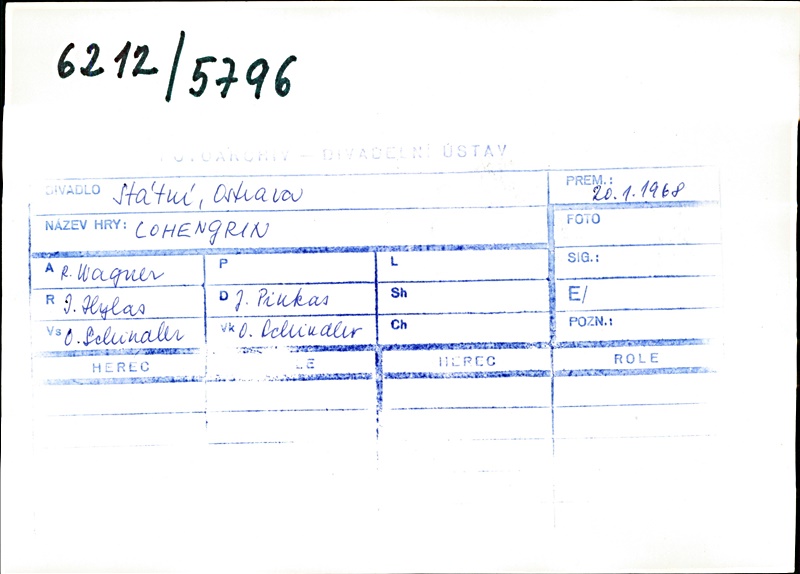 6212/5796
FOTOARCHIV – DIVADELNÍ ÚSTAV
DIVADLO Státní, Ostrava
PREM.: 20.1.1968
NÁZEV HRY: LOHENGRIN
FOTO
A R. Wagner
P
L
SIG.:
R I. Hylas
D J. Pinkas
Sh
E/
Vs O. Schindler
Vk O. Schindler
Ch
POZN.:
HEREC
LE
HEREC
ROLE